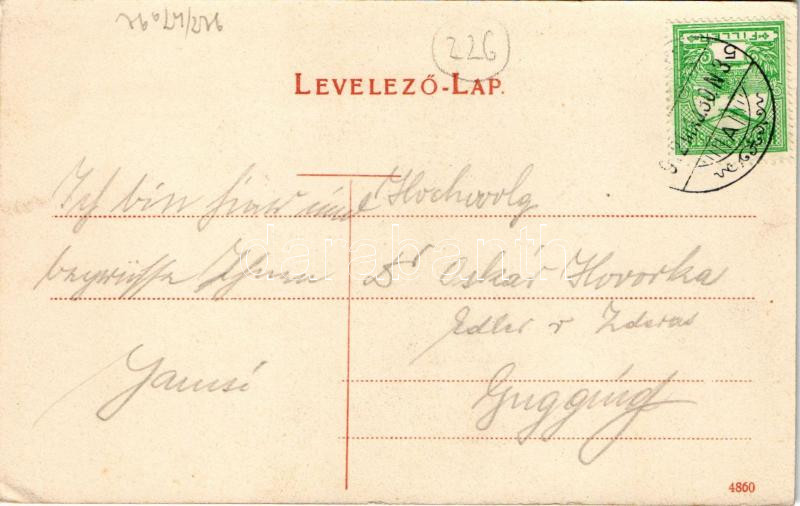 226
LEVELEZŐ-LAP.
FILLÉR
Ich bin hier und
begrüsse Ihnen
Jancsi
Hochwolg
Dr Oskár Hovorka
Edler v Zderas
Gugging
4860
darabanth